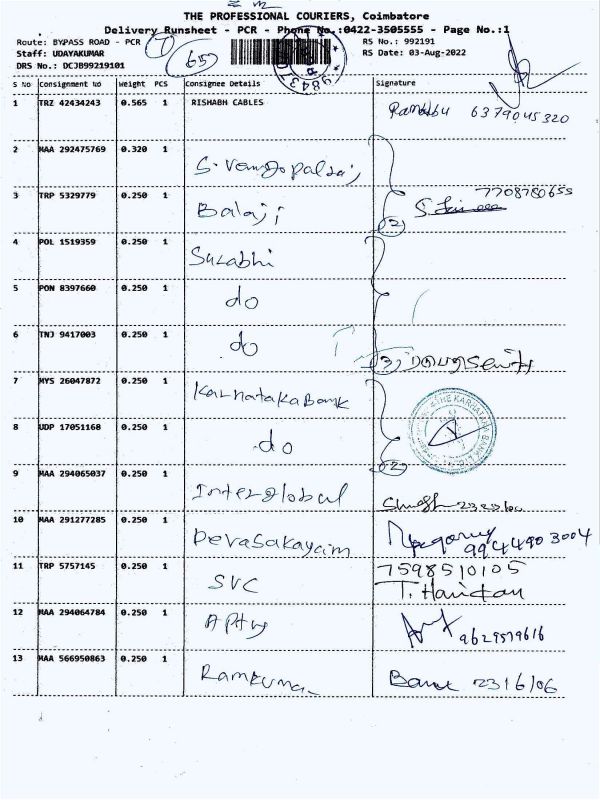 THE PROFESSIONAL COURIERS, Coimbatore
Delivery Runsheet - PCR - Phone No.:0422-3505555 - Page No.:1
Route: BYPASS ROAD - PCR
RS No.: 992191
Staff: UDAYAKUMAR
655
RS Date: 03-Aug-2022
DRS No.: DCJB99219101
S No Consignment No Weight PCS Consignee Details Signature
1 TRZ 42434243 0.565 1 RISHABH CABLES 6379045320
2 MAA 292475769 0.320 1
7708780655
3 TRP 5329779 0.250 1 Balaji
2
4 POL 1519359 0.250 1 Surabhi
5 PON 8397660 0.250 1 do
6 TNJ 9417003 0.250 1 do
3
7 MYS 26047872 0.250 1 Karnataka Bank
THE KARNATAKA BANK LTD
8 UDP 17051168 0.250 1 do
2
9 MAA 294065037 0.250 1 Interglobal
10 MAA 291277285 0.250 1 Devasakayam
9944903004
11 TRP 5757145 0.250 1 SVC 7598510105
12 MAA 294064784 0.250 1 9629579616
13 MAA 566950863 0.250 1 Ramkumar 2316106